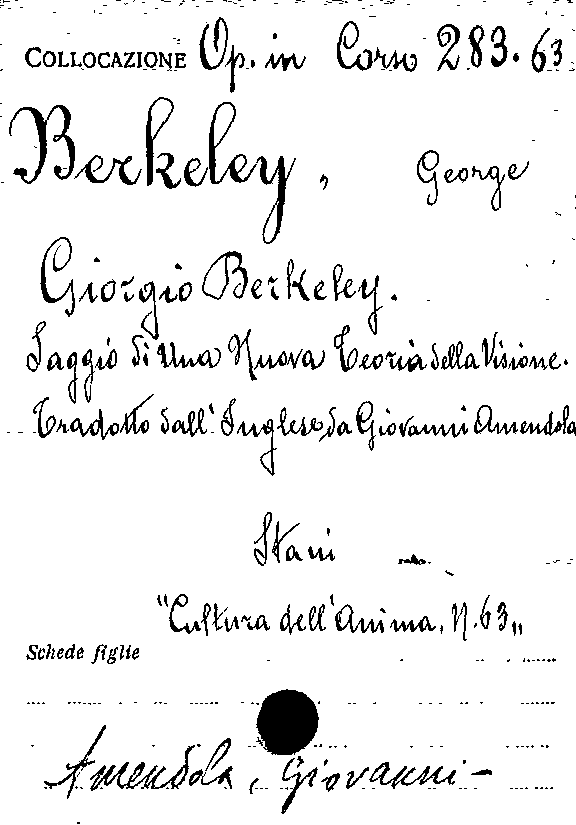 COLLOCAZIONE Op. in Corso 283.63
Berkeley, George
Giorgio Berkeley.
Saggio di Una Nuova Teoria della Visione.
Tradotto dall'Inglese da Giovanni Amendola
"Cultura dell'Anima, N. 63„
Schede figlie
Amendola, Giovanni –